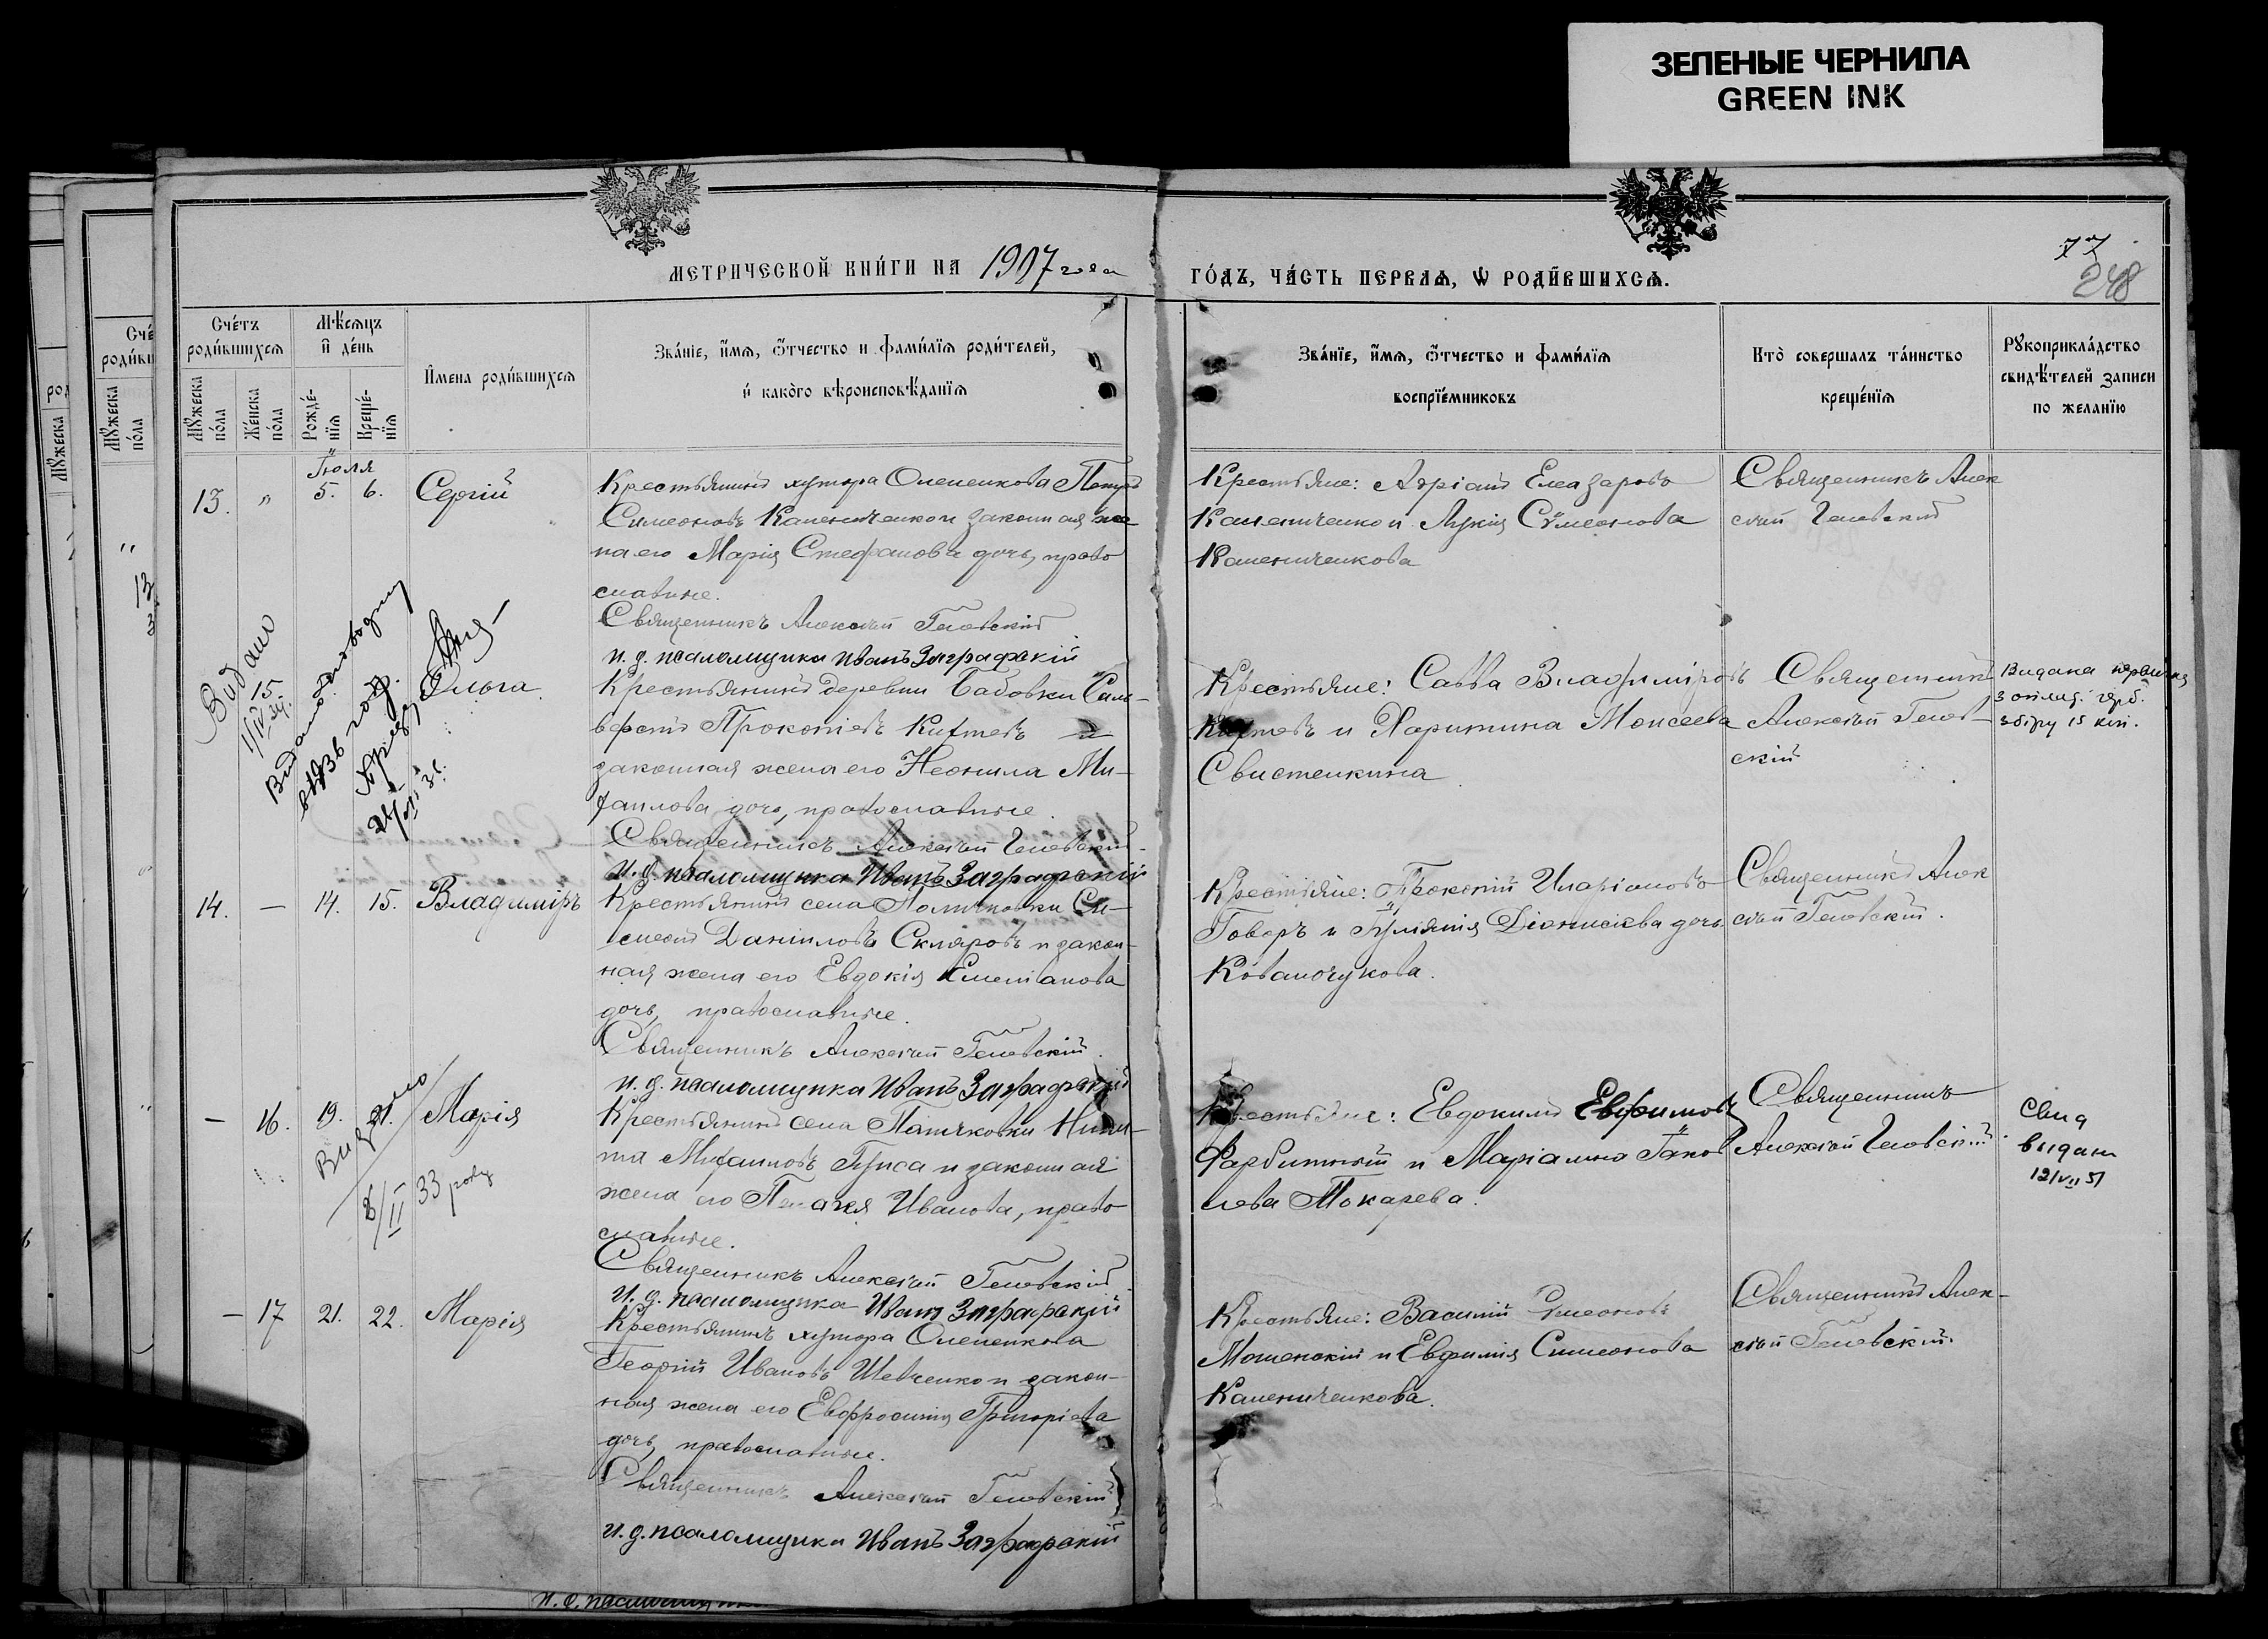 ЗЕЛЕНЫЕ ЧЕРНИЛА
GREEN INK
МЕТРИЧЕСКОЙ КНИ́ГИ НА 1907 года
ГО́ДЪ, ЧА́СТЬ ПЕРВАѦ, Ѡ РОДИ́ВШИХСѦ.
77
248
Сче́тъ роди́вшихсѧ
Мꙋ́жеска по́ла
Же́нска по́ла
Мѣ́сѧцъ и҆ де́нь
Рожде́нїѧ
Креще́нїѧ
И҆мена роди́вшихсѧ
Зва́нїе, и҆́мѧ, ѻ҆́тчество и фами́лїѧ роди́телей,
и҆ како́го вѣроисповѣ́данїѧ
Зва́нїе, и҆́мѧ, ѻ҆́тчество и фами́лїѧ
воспрїе́мниковъ
Кто̀ совершалъ та́инство
креще́нїѧ
Рꙋкоприкла́дство
свидѣ́телей записи
по желанїю
Іюля
13. " 5. 6. Сергій
Крестьянинъ хутора Олепенкова Петръ
Симеоновъ Каленниченко и законная же
на его Марія Стефанова дочь, право
славные.
Священникъ Алексѣй Гелевскій
и. д. псаломщика Иванъ Заградскій
Крестьяне: Адріанъ Елеазаровъ
Калениченко и Лукія Сѵмеонова
Калениченкова
Священникъ Алек
сѣй Гелевскій
Видано
15
Ольга.
Крестьянинъ деревни Бабовки Силь-
верстъ Прокопіевъ Кихтевъ и
законная жена его Неонила Ми-
хаилова дочь, православные.
Священникъ Алексѣй Гелевскій
и. д. псаломщика Иванъ Заградскій
Крестьяне: Савва Владиміровъ
Кихтевъ и Харитина Моисеева
Свистелкина
Священникъ
Алексѣй Гелев-
скій
Видана
збіру 15 коп.
14. — 14. 15. Владиміръ
Крестьянинъ села Поличковки Си-
меонъ Даніиловъ Скляровъ и закон-
ная жена его Евдокія Емеліанова
дочь, православные.
Священникъ Алексѣй Гелевскій.
и. д. псаломщика Иванъ Заградскій
Крестьяне: Прокопій Иларіоновъ
Говоръ и Іуліанія Діонисіева дочь
Ковальчукова.
Священникъ Алек
сѣй Гелевскій.
— 16. 19. 21. Марія
Видано
8/II 33 року
Крестьянинъ села Патичковки Ники-
та Михаиловъ Гриса и законная
жена его Пелагея Иванова, право
славные.
Священникъ Алексѣй Гелевскій
и. д. псаломщика Иванъ Заградскій
Крестьяне: Евдокимъ Евфимовъ
Фарбитный и Маріамна Іаков
лева Токарева.
Священникъ
Алексѣй Гелевскій.
Свид
выдан
12/VII 51
— 17 21. 22. Марія
Крестьянинъ хутора Олепенкова
Георгій Ивановъ Шевченко и закон-
ная жена его Евфросинія Григоріева
дочь, православные.
Священникъ Алексѣй Гелевскій
и. д. псаломщика Иванъ Заградскій
Крестьяне: Василій Сѵмеоновъ
Мошенскій и Евфимія Симеонова
Калениченкова.
Священникъ Алек-
сѣй Гелевскій.